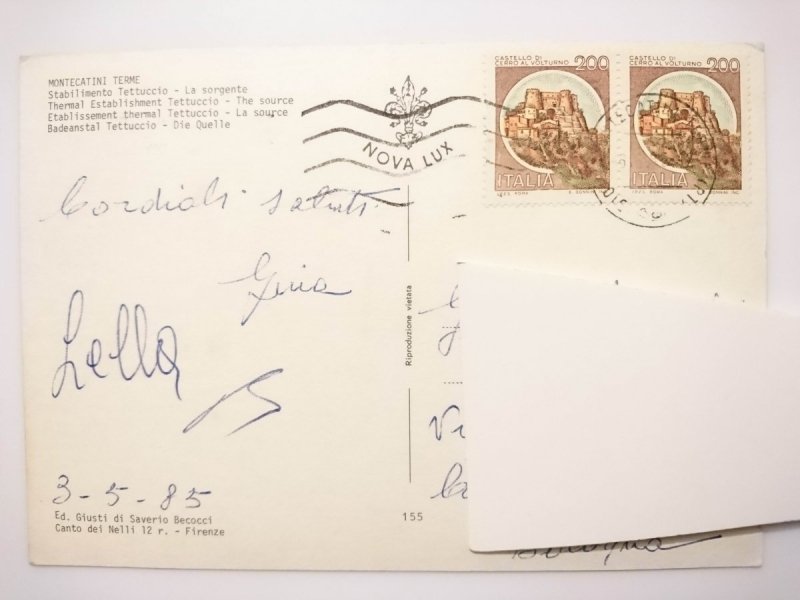 MONTECATINI TERME
Stabilimento Tettuccio - La sorgente
Thermal Establishment Tettuccio - The source
Etablissement thermal Tettuccio - La source
Badeanstal Tettuccio - Die Quelle
NOVA LUX
CASTELLO DI
CERRO AL VOLTURNO 200
ITALIA
CASTELLO DI
CERRO AL VOLTURNO 200
ITALIA
Cordiali saluti
Lella
3-5-85
Ed. Giusti di Saverio Becocci
Canto dei Nelli 12 r. - Firenze
155
Riproduzione vietata
Bologna